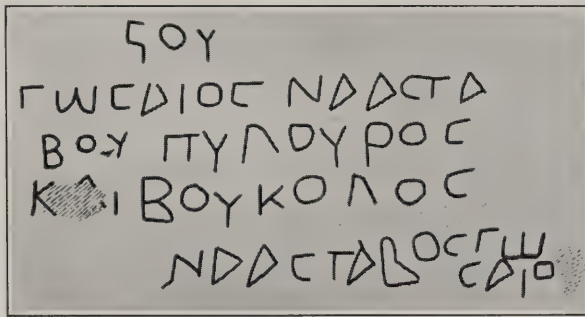 ϚΟΥ
ΓωϹΑΙΟϹ ΝΑΑϹΤΑ
ΒΟΥ ΠΥΛΟΥΡΟϹ
ΚΑΙ ΒΟΥΚΟΛΟϹ
ΝΑΑϹΤΑΒΟϹ Γω
ϹΑΙΟ